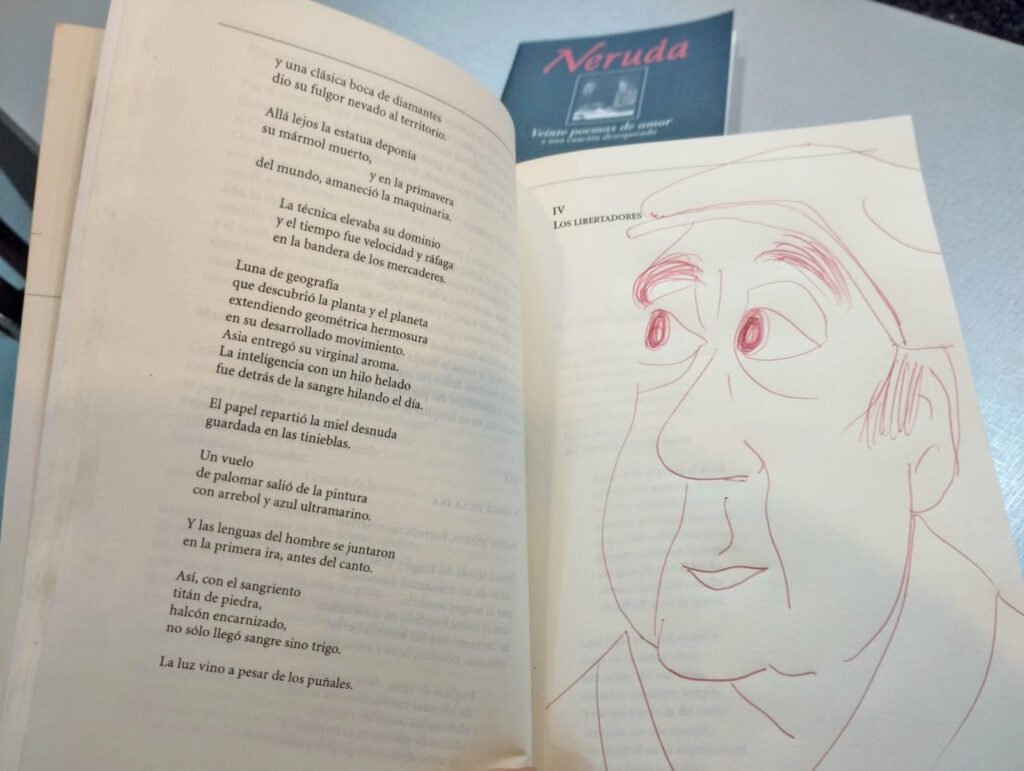 y una clásica boca de diamantes
dio su fulgor nevado al territorio.
Allá lejos la estatua deponía
su mármol muerto,
y en la primavera
del mundo, amaneció la maquinaria.
La técnica elevaba su dominio
y el tiempo fue velocidad y ráfaga
en la bandera de los mercaderes.
Luna de geografía
que descubrió la planta y el planeta
extendiendo geométrica hermosura
en su desarrollado movimiento.
Asia entregó su virginal aroma.
La inteligencia con un hilo helado
fue detrás de la sangre hilando el día.
El papel repartió la miel desnuda
guardada en las tinieblas.
Un vuelo
de palomar salió de la pintura
con arrebol y azul ultramarino.
Y las lenguas del hombre se juntaron
en la primera ira, antes del canto.
Así, con el sangriento
titán de piedra,
halcón encarnizado,
no sólo llegó sangre sino trigo.
La luz vino a pesar de los puñales.
Neruda
Veinte poemas de amor
y una canción desesperada
IV
LOS LIBERTADORES